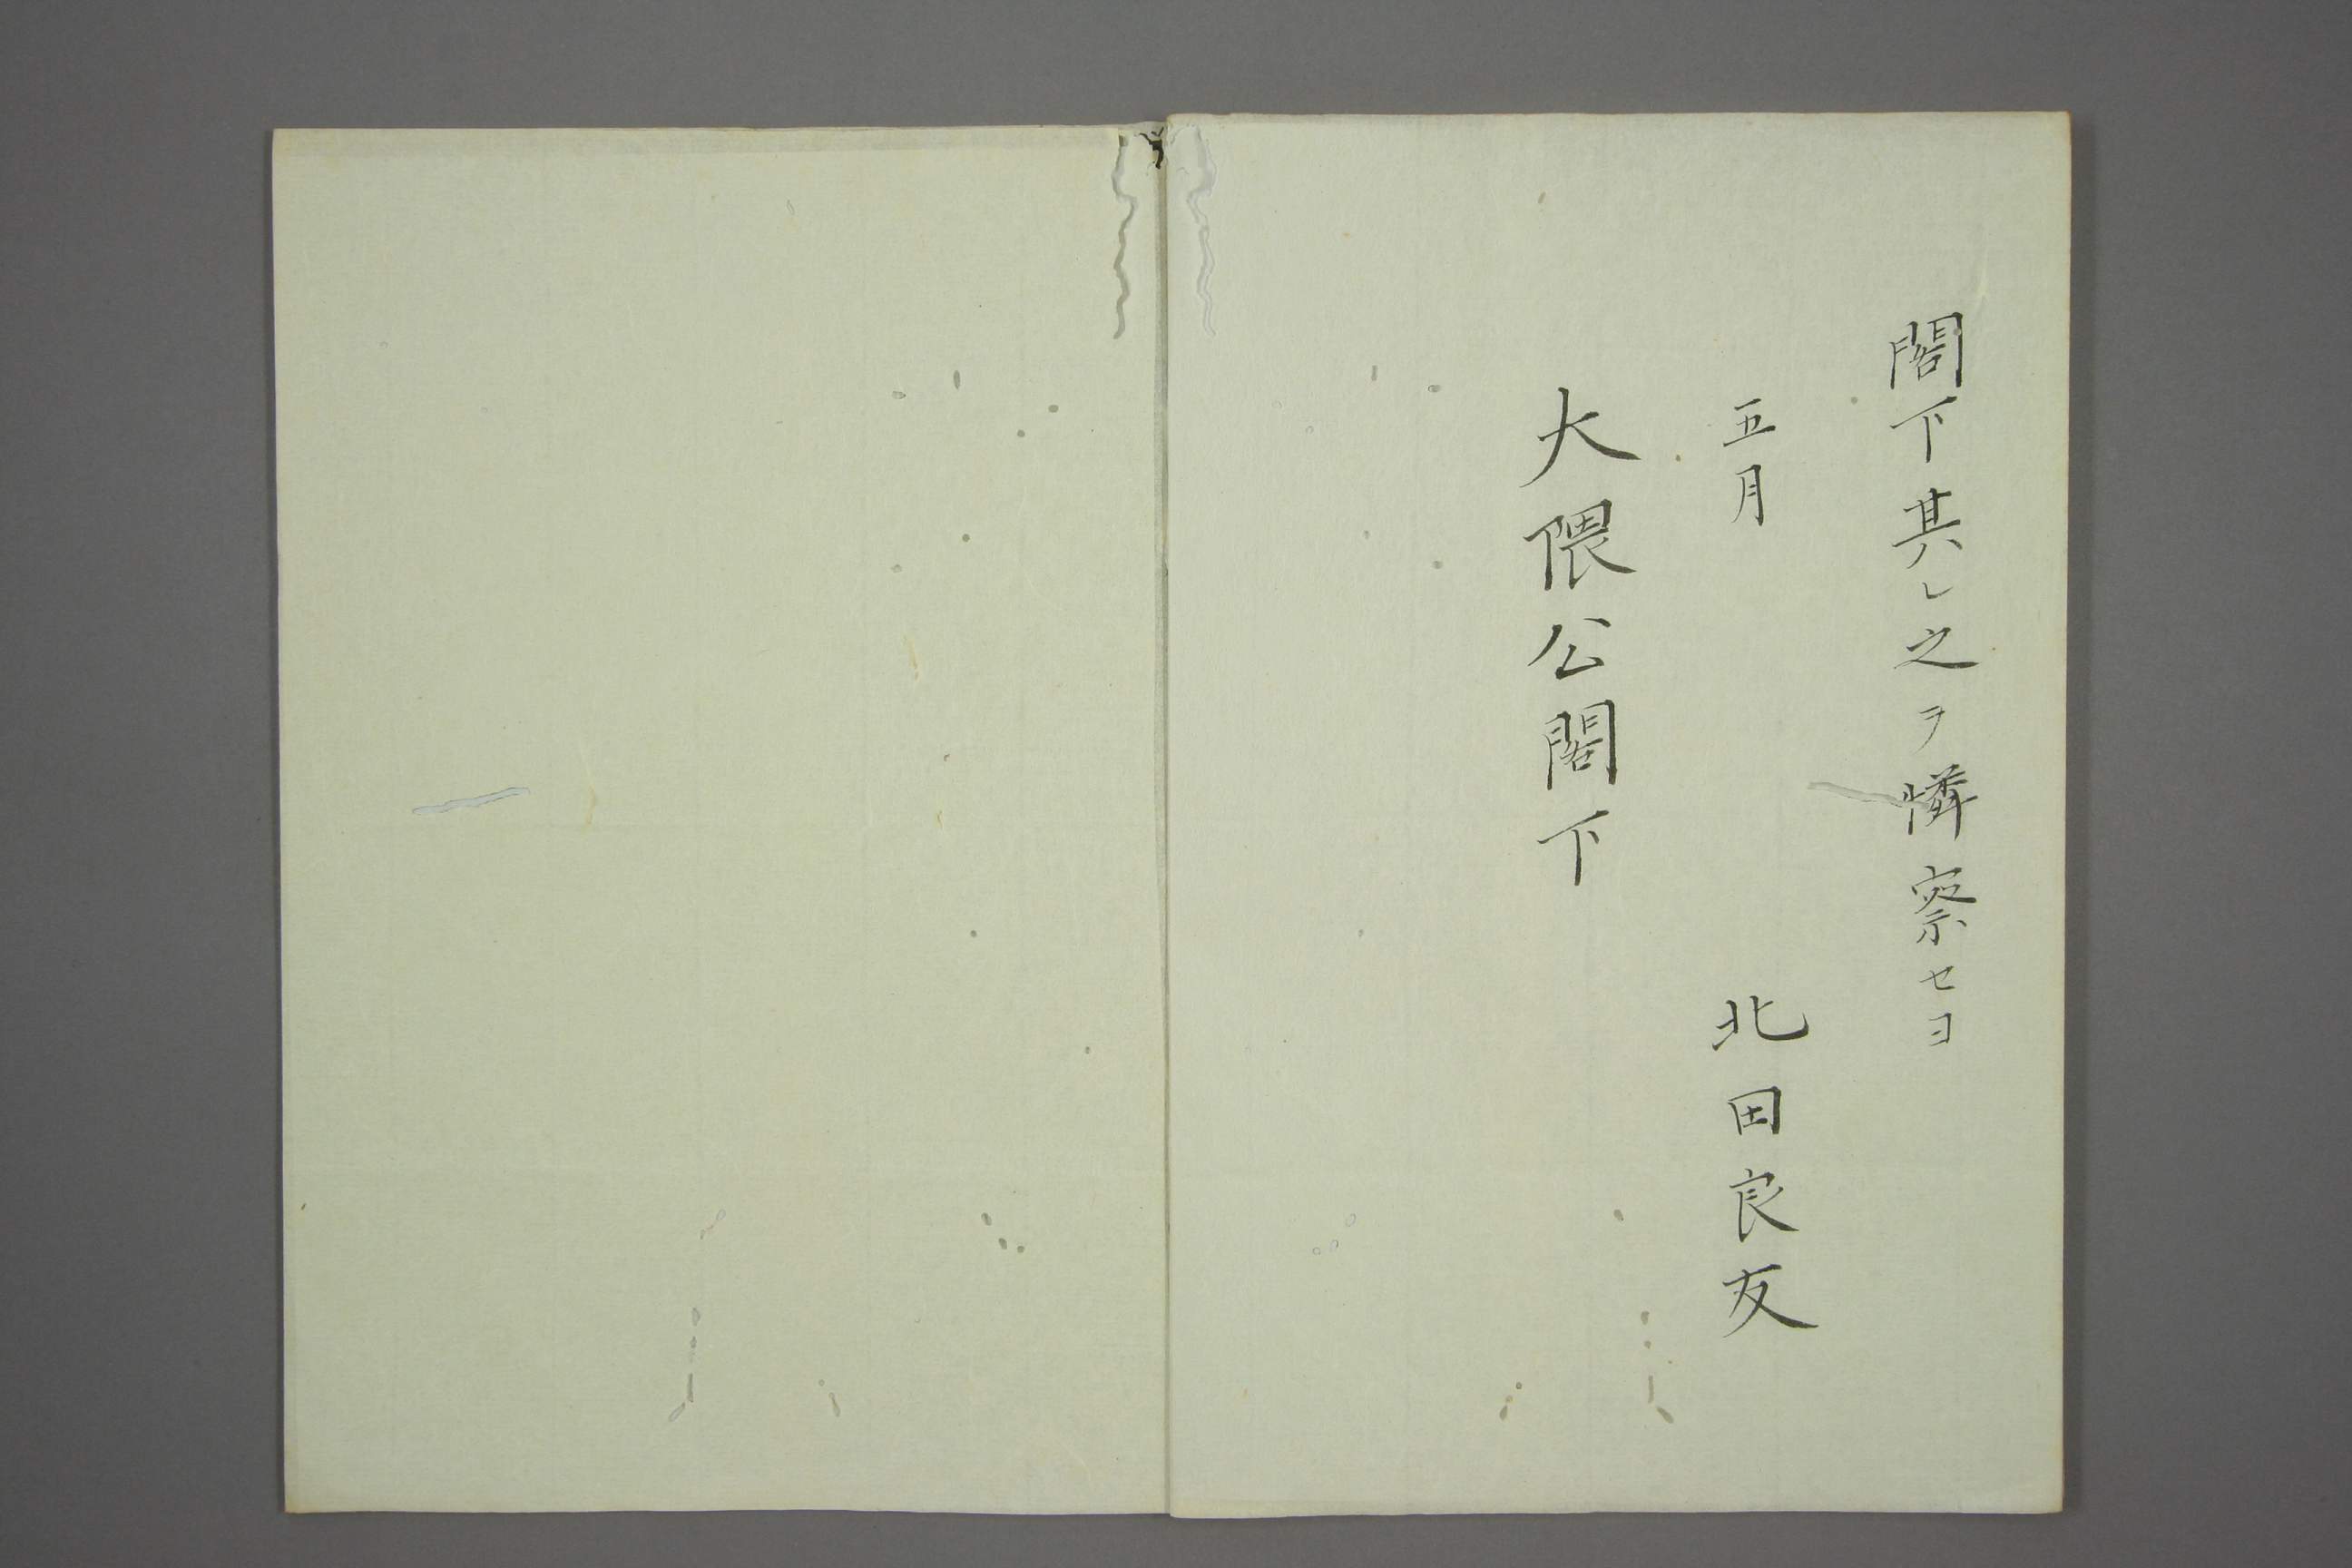 閣下其レ之ヲ憐察セヨ
五月 北田良友
大隈公閣下